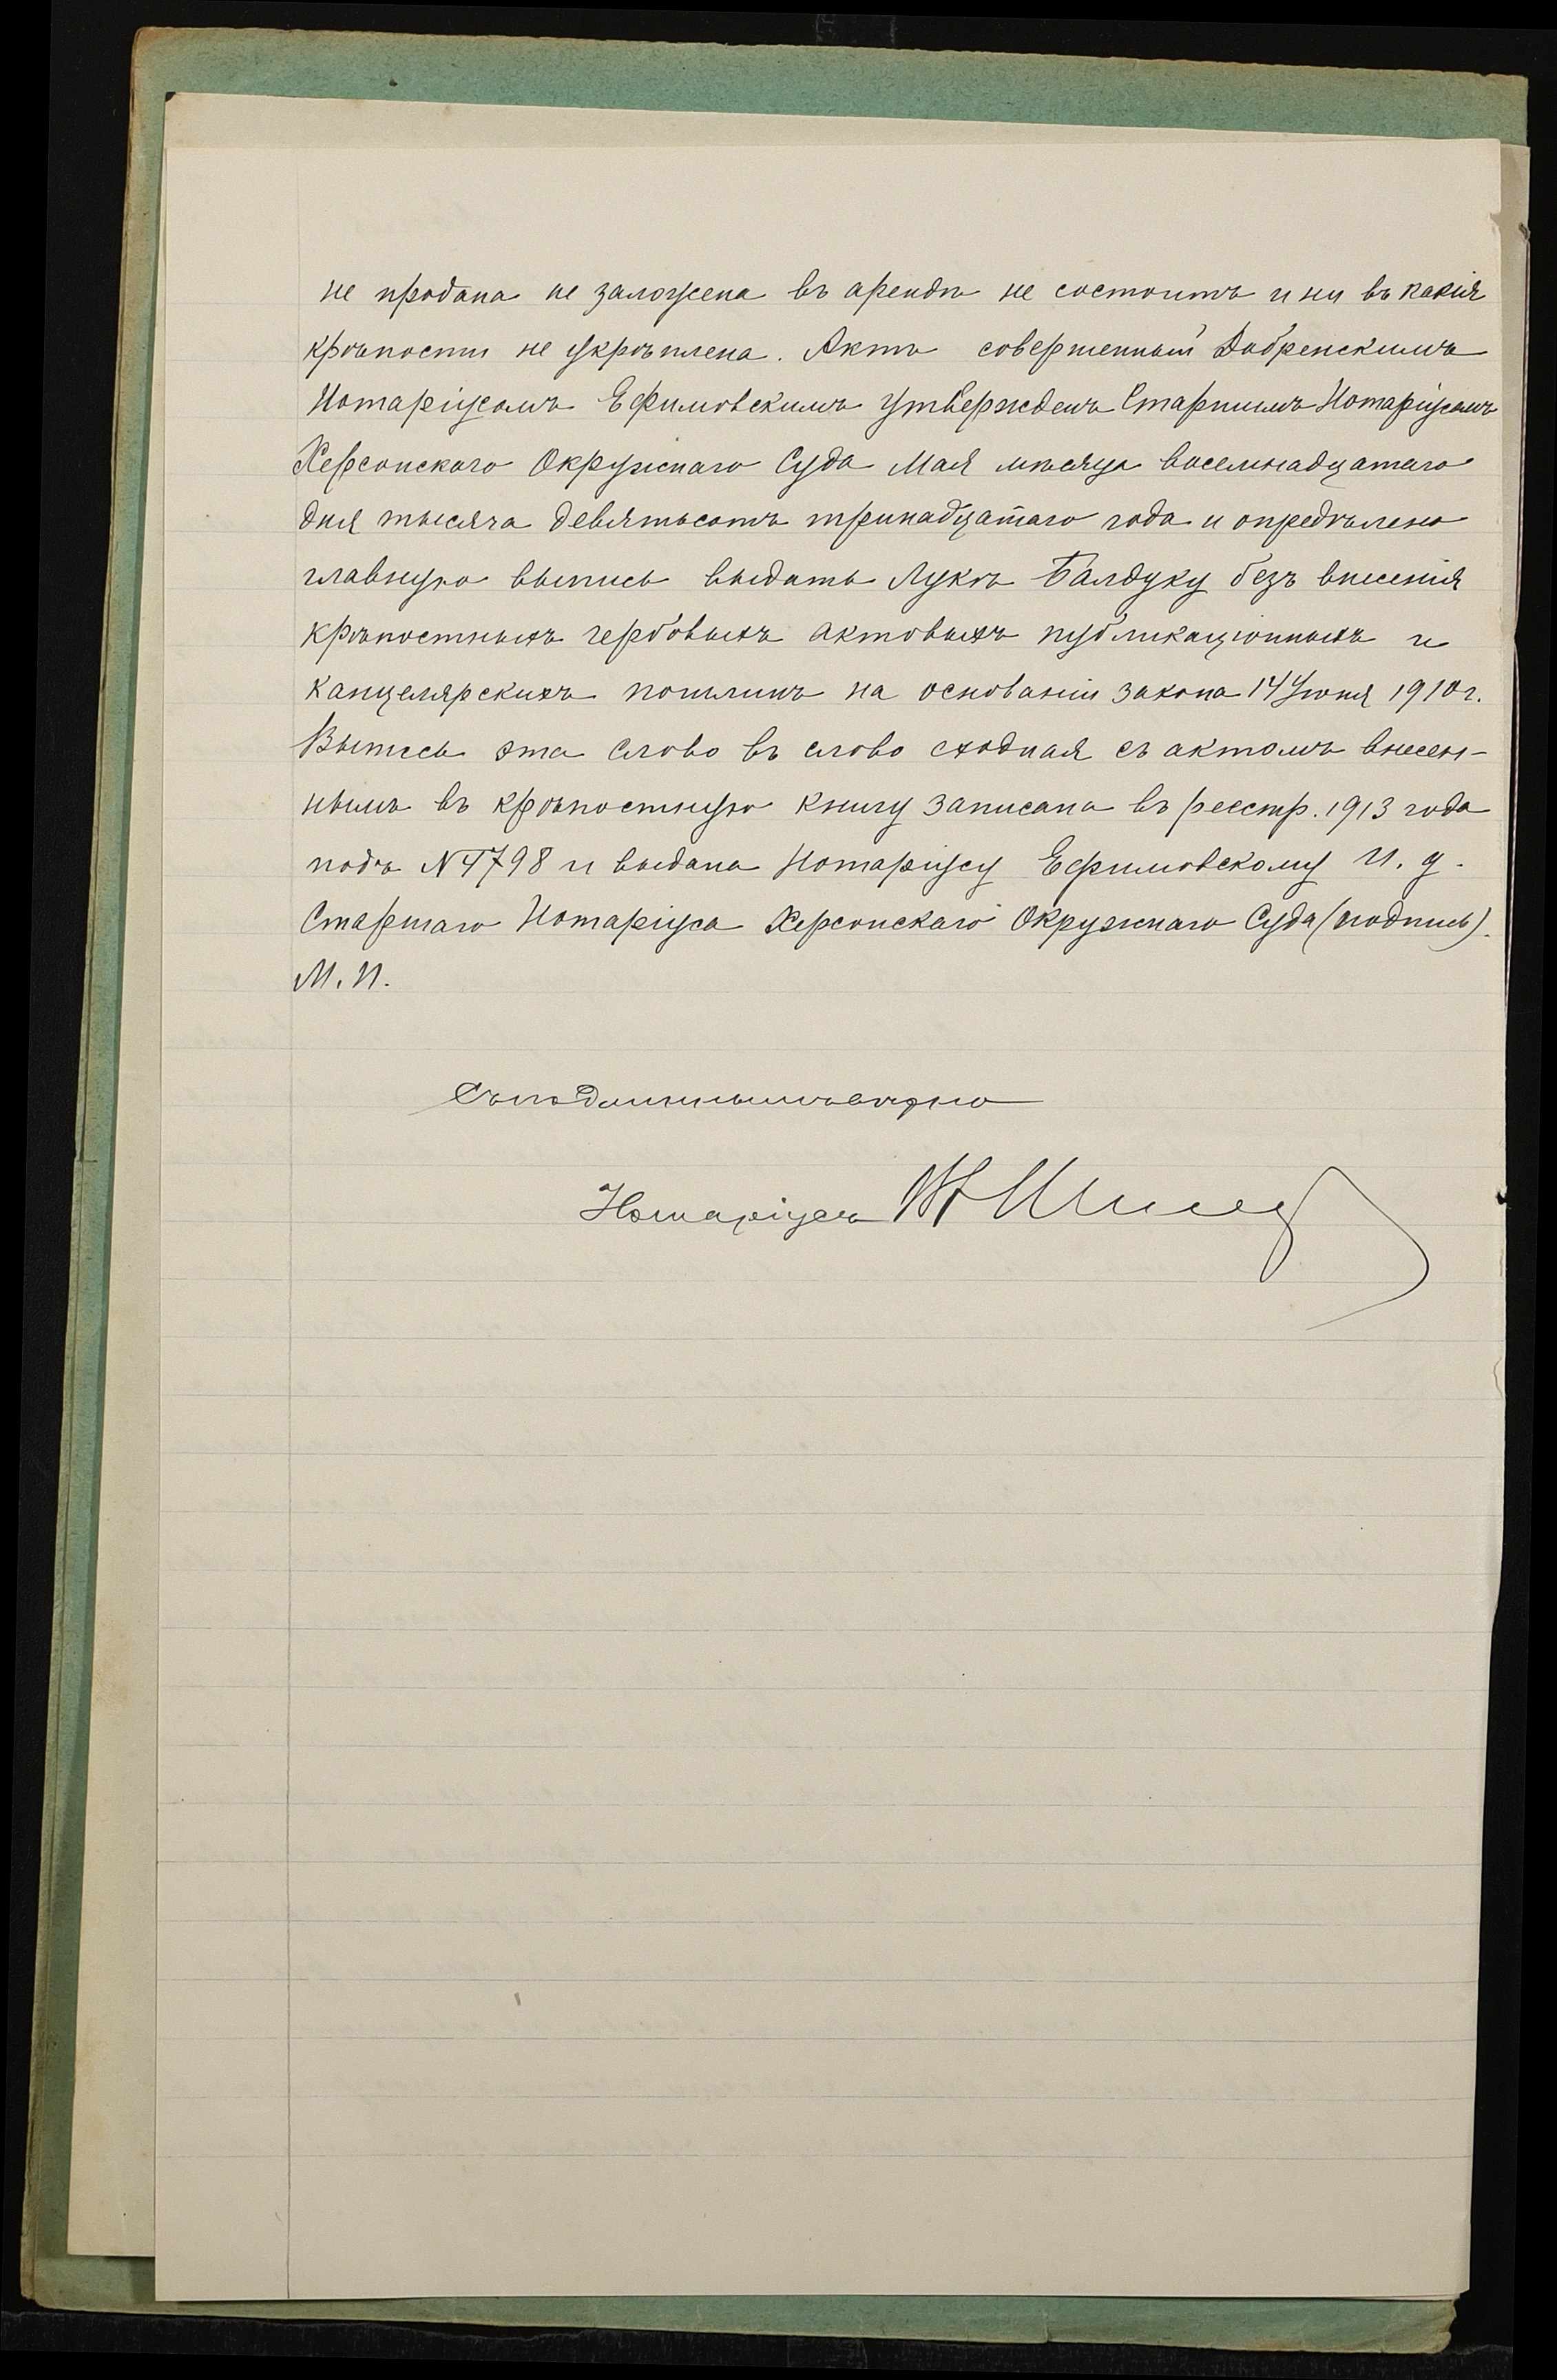 не продана не заложена въ арендѣ не состоитъ и ни въ какія
крѣпости не укрѣплена. Актъ совершенный Добренскимъ
Нотаріусомъ Ефимовскимъ утвержденъ Старшимъ Нотаріусомъ
Херсонскаго Окружнаго Суда Мая мѣсяца восемнадцатаго
дня тысяча девятьсотъ тринадцатаго года и опредѣлено
главную выпись выдать Лукѣ Балдуку безъ внесенія
крѣпостныхъ гербовыхъ актовыхъ публикаціонныхъ и
канцелярскихъ пошлинъ на основаніи закона 14 Іюня 1910 г.
Выпись эта слово въ слово сходная съ актомъ внесен-
нымъ въ крѣпостную книгу записана въ реестр. 1913 года
подъ N 4798 и выдана Нотаріусу Ефимовскому И. д.
Старшаго Нотаріуса Херсонскаго Окружнаго Суда (подпись).
М. П.
Съ подлиннымъ вѣрно
Нотаріусъ